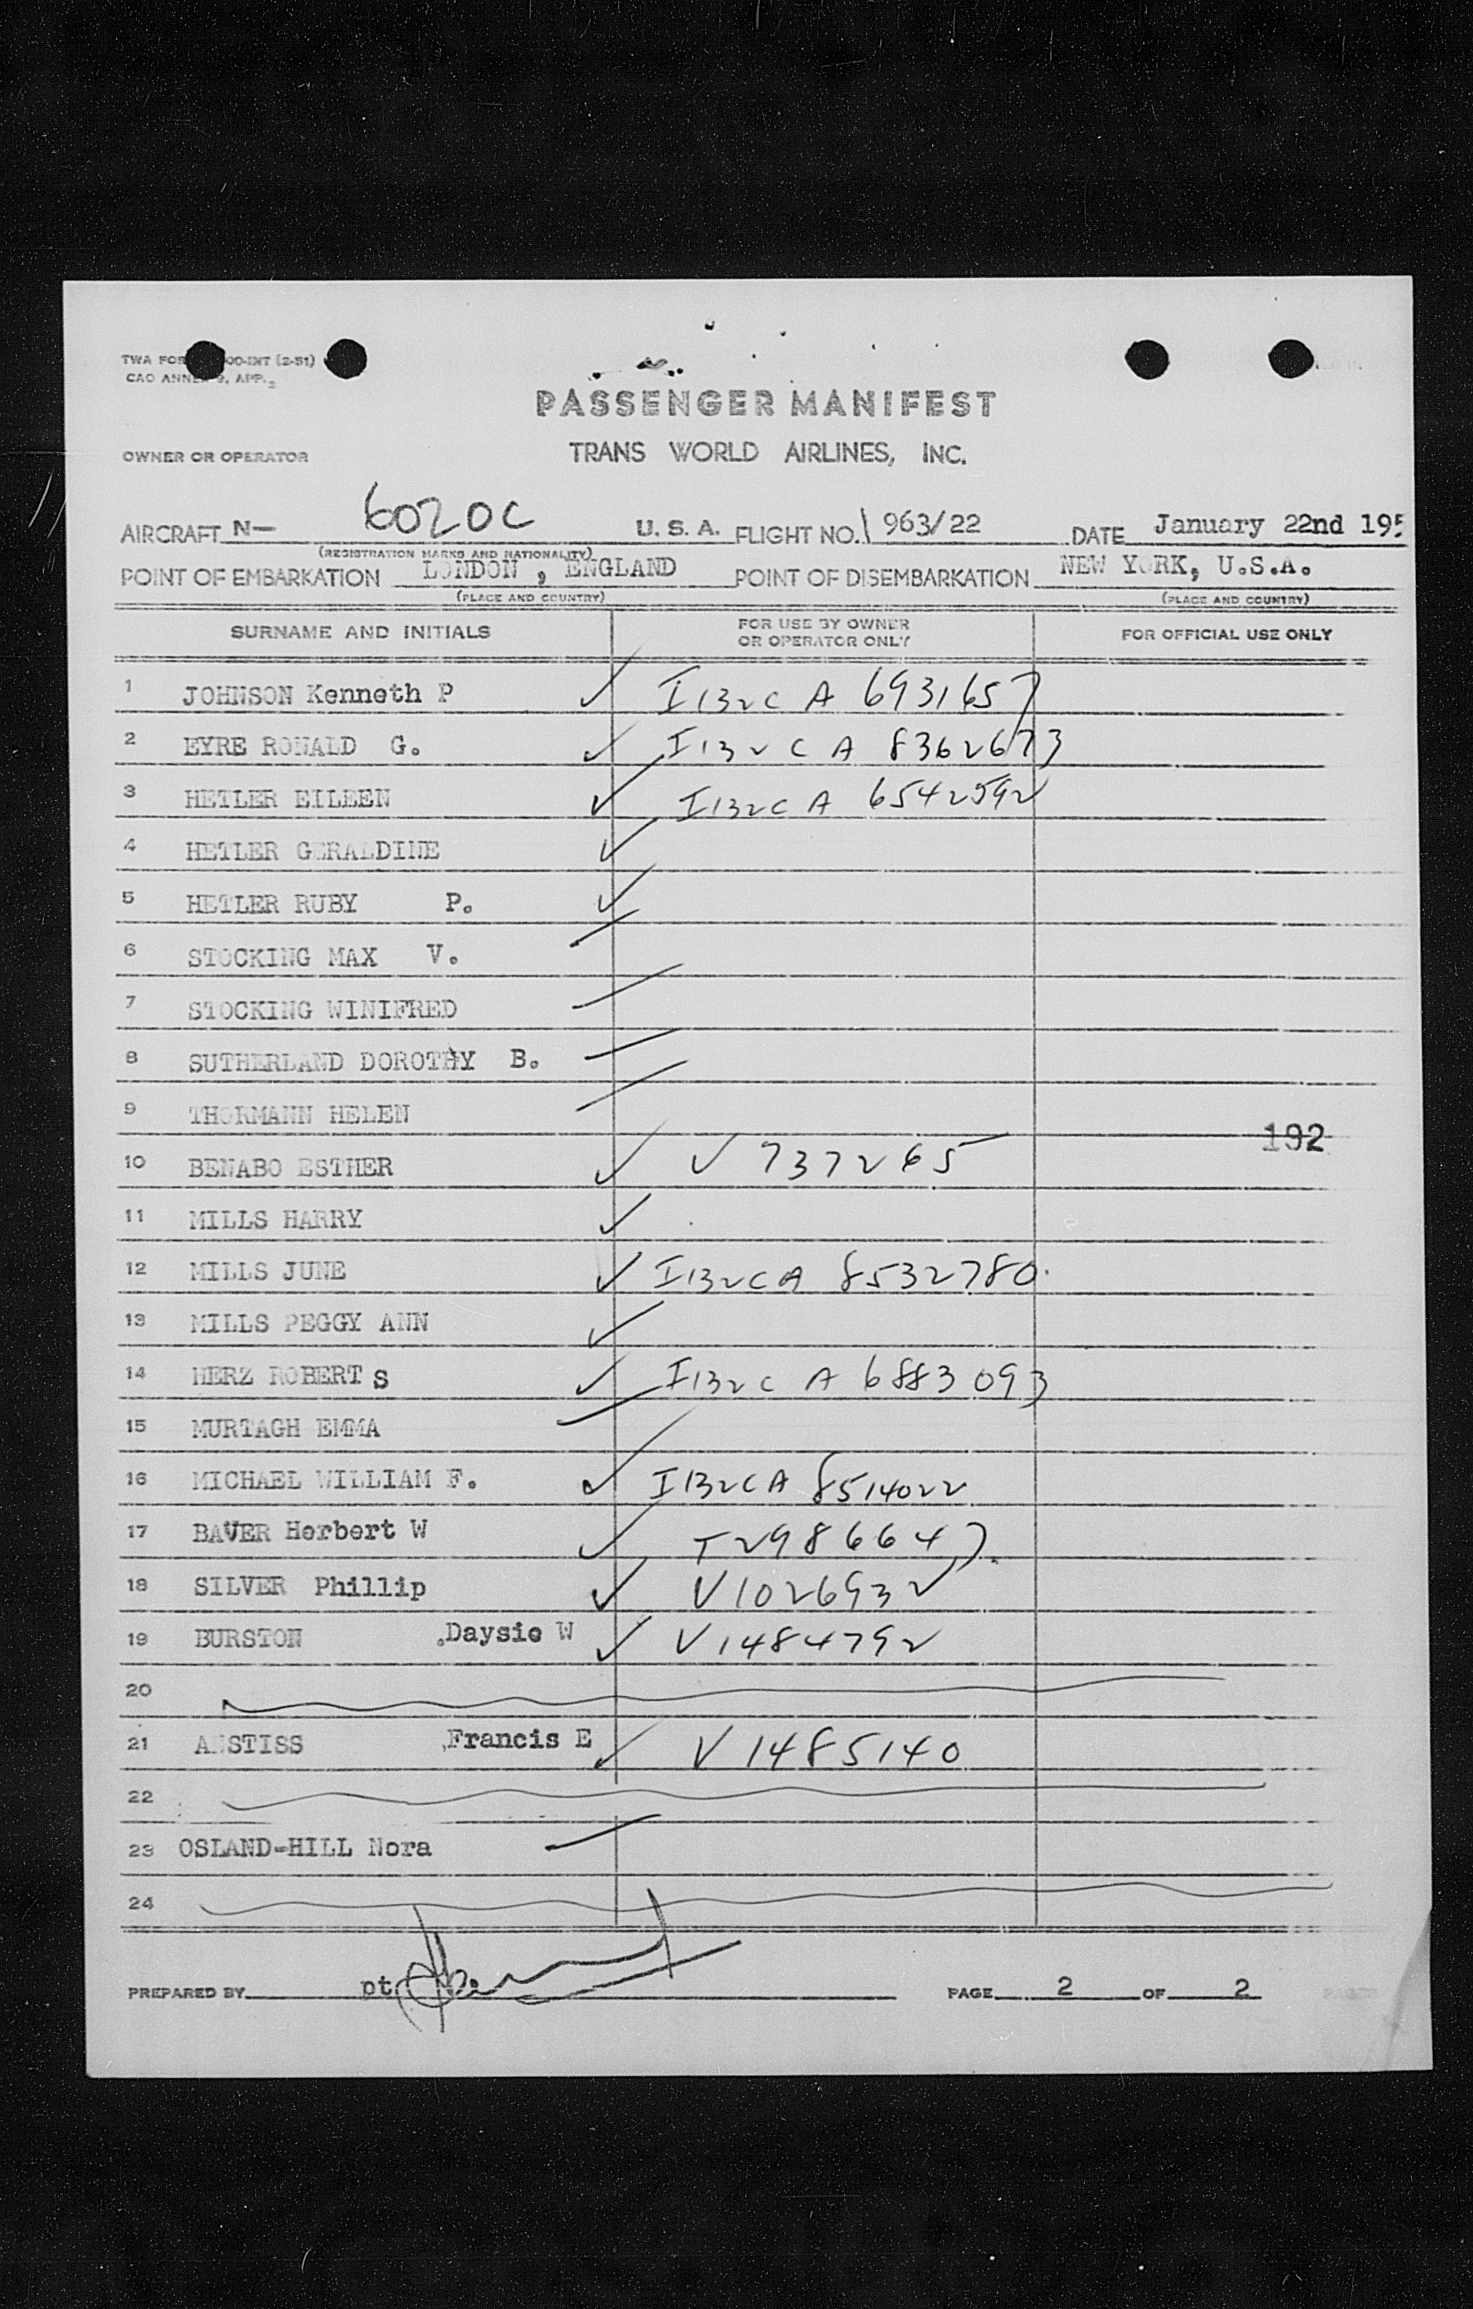 PASSENGER MANIFEST
OWNER OR OPERATOR TRANS WORLD AIRLINES, INC.
AIRCRAFT N- 6020C U. S. A. FLIGHT NO. 963/22 DATE January 22nd 195
(REGISTRATION MARKS AND NATIONALITY)
POINT OF EMBARKATION LONDON, ENGLAND POINT OF DISEMBARKATION NEW YORK, U.S.A.
(PLACE AND COUNTRY) (PLACE AND COUNTRY)
SURNAME AND INITIALS FOR USE BY OWNER OR OPERATOR ONLY FOR OFFICIAL USE ONLY
1 JOHNSON Kenneth P I132C A 6931657
2 EYRE RONALD G. I132C A 8362673
3 HETLER EILEEN I132C A 6542592
4 HETLER GERALDINE
5 HETLER RUBY P.
6 STOCKING MAX V.
7 STOCKING WINIFRED
8 SUTHERLAND DOROTHY B.
9 THORMANN HELEN
192
10 BENABO ESTHER V 737265
11 MILLS HARRY
12 MILLS JUNE I132C A 8532780.
13 MILLS PEGGY ANN
14 HERZ ROBERT S I132C A 6883093
15 MURTAGH EMMA
16 MICHAEL WILLIAM F. I132C A 8514022
17 BAUER Herbert W T2986647.
18 SILVER Phillip V1026932
19 BURSTON .Daysie W V1484792
20
21 ANSTISS ,Francis E V1485140
22
23 OSLAND-HILL Nora
24
PREPARED BY pt PAGE 2 OF 2